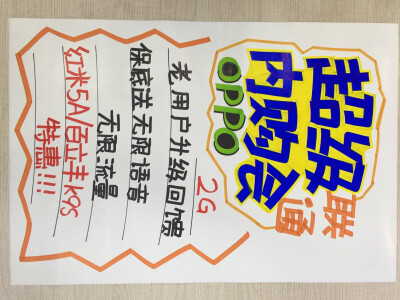 超级
内购会
联通
OPPO
2G
老用户升级回馈
保底送无限语音
无限流量
红米5A/百立丰K9S
特惠!!!